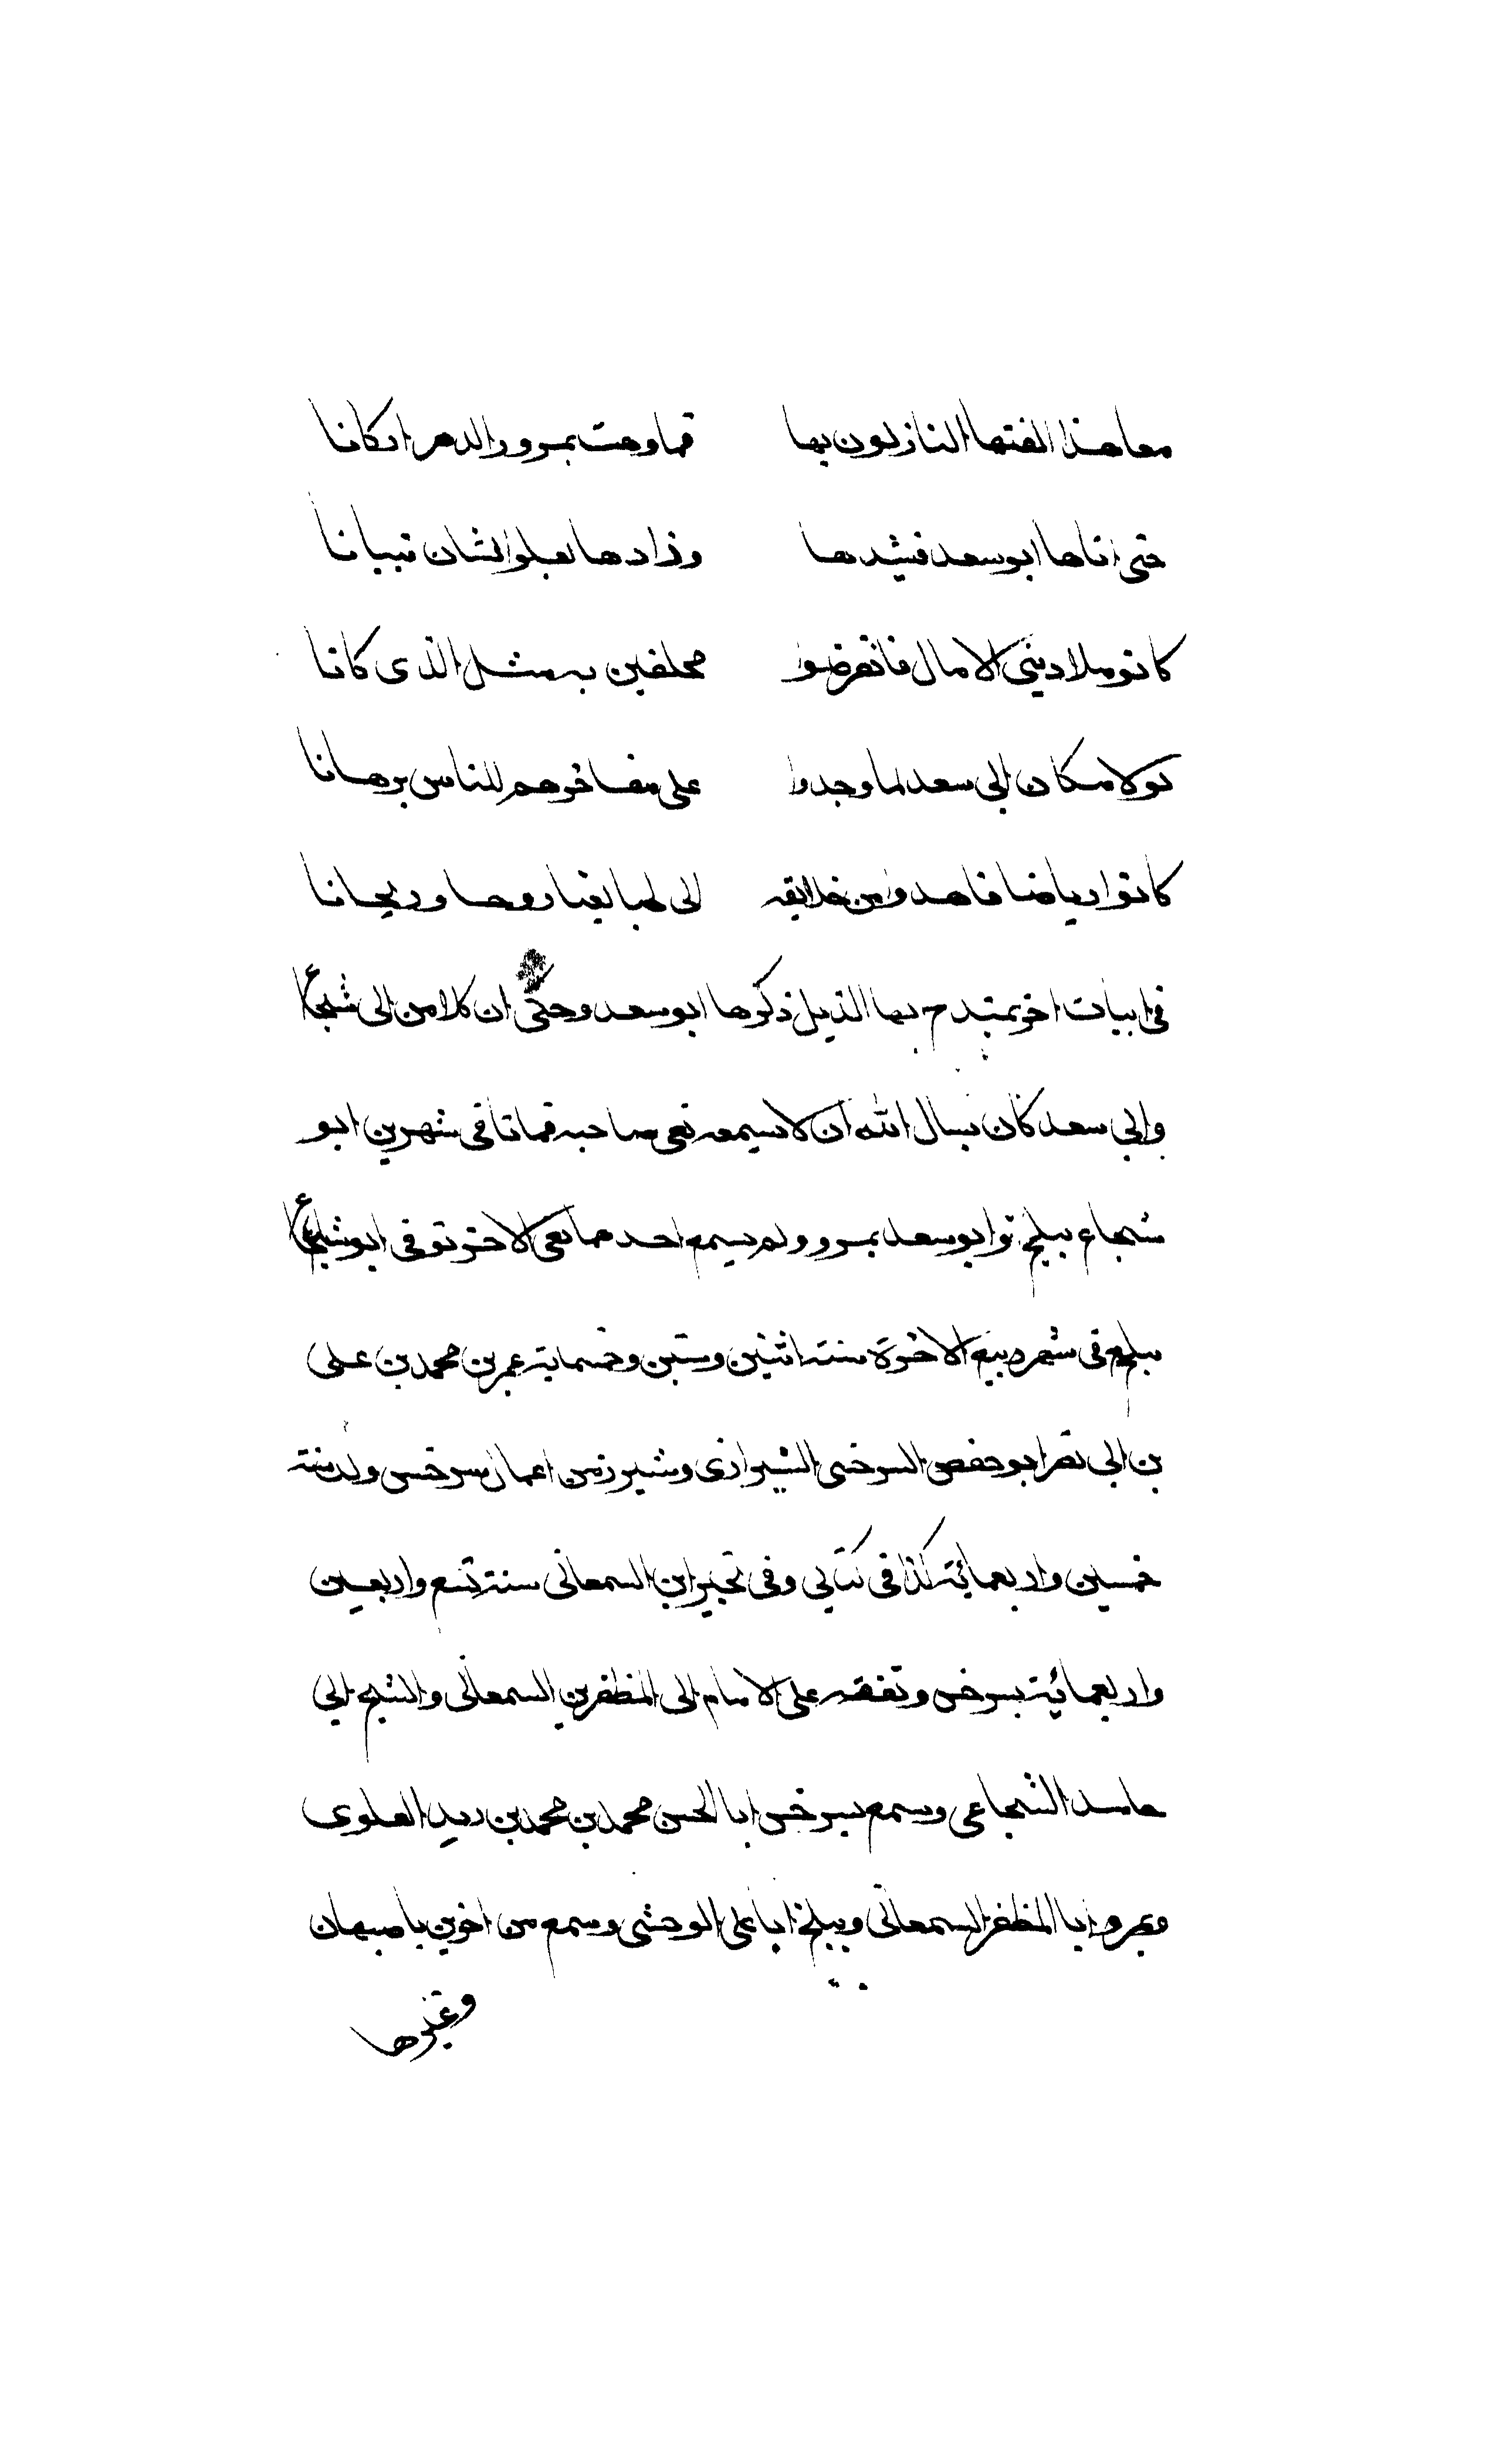 معاهذا الفتها النازلون بها فما وهت بمرور الدهر اركانا
حتى اتاها ابو سعد فشيدها وزادها بعلو الشان تبيانا
كانو ملاذ بنى الامال فانقرضوا مخلفين به مثل الذى كانا
لولا مكان ابى سعد لما وجدوا على مفاخرهم للناس برهانا
كانوا رياضا فاهدوا من خلايقه الى طبايعنا روحا وريحانا
فى ابيات اخر يمتدح بها الذيل ذكرها ابو سعد وحكى ان كلا من ابى شجاع
وابى سعد كان يسال الله ان لا يسمعه نعى صاحبه فماتا فى شهرين ابو
شجاع ببلخ وابو سعد بمرو ولم يسمع احدهما نعى الاخر توفى ابو شجاع
ببلخ فى شهر ربيع الاخرة سنة اثنين وستين وخمساية عمر بن محمد بن على
بن ابى نصر ابو حفص السرخسى الشيرازى وشيرز من اعمال سرخس ولد سنة
خمسين واربعمائة كذا فى كتابى وفى تحبير ابن السمعانى سنة تسع واربعين
واربعمائة بسرخس وتفقه على الامام ابى المظفر بن السمعانى والشيخ ابى
حامد الشجاعى وسمع بسرخس ابا الحسن محمد بن محمد بن زيد العلوى
وبمرو ابا المظفر السمعانى وببلخ ابا على الوحشى وسمع من اخرين باصبهان
وغيرها